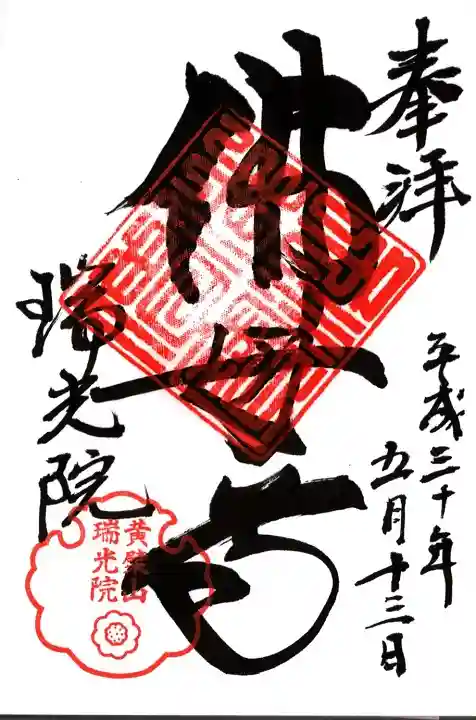 奉拝
平成三十年
五月十三日
佛
瑞光院
黄檗山
瑞光院